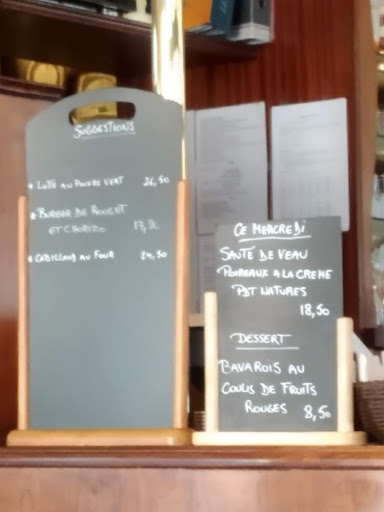 SUGGESTIONS
LOTTE AU POIVRE VERT 26,50
BURGER DE ROUGET
ET CHORIZO
CABILLAUD AU FOUR 24,50
CE MERCREDI
SAUTE DE VEAU
POIREAUX A LA CREME
PDT NATURES
18,50
DESSERT
BAVAROIS AU
COULIS DE FRUITS
ROUGES 8,50